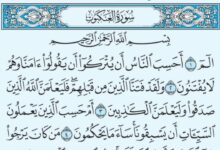 سُورَةُ العَنكَبُوتِ
بِسْمِ اللَّهِ الرَّحْمَٰنِ الرَّحِيمِ
الٓمٓ ١ أَحَسِبَ النَّاسُ أَن يُتْرَكُوا أَن يَقُولُوا ءَامَنَّا وَهُمْ
لَا يُفْتَنُونَ ٢ وَلَقَدْ فَتَنَّا الَّذِينَ مِن قَبْلِهِمْ فَلَيَعْلَمَنَّ اللَّهُ الَّذِينَ
صَدَقُوا وَلَيَعْلَمَنَّ الْكَٰذِبِينَ ٣ أَمْ حَسِبَ الَّذِينَ يَعْمَلُونَ
السَّيِّئَاتِ أَن يَسْبِقُونَا سَاءَ مَا يَحْكُمُونَ ٤ مَن كَانَ يَرْجُوا